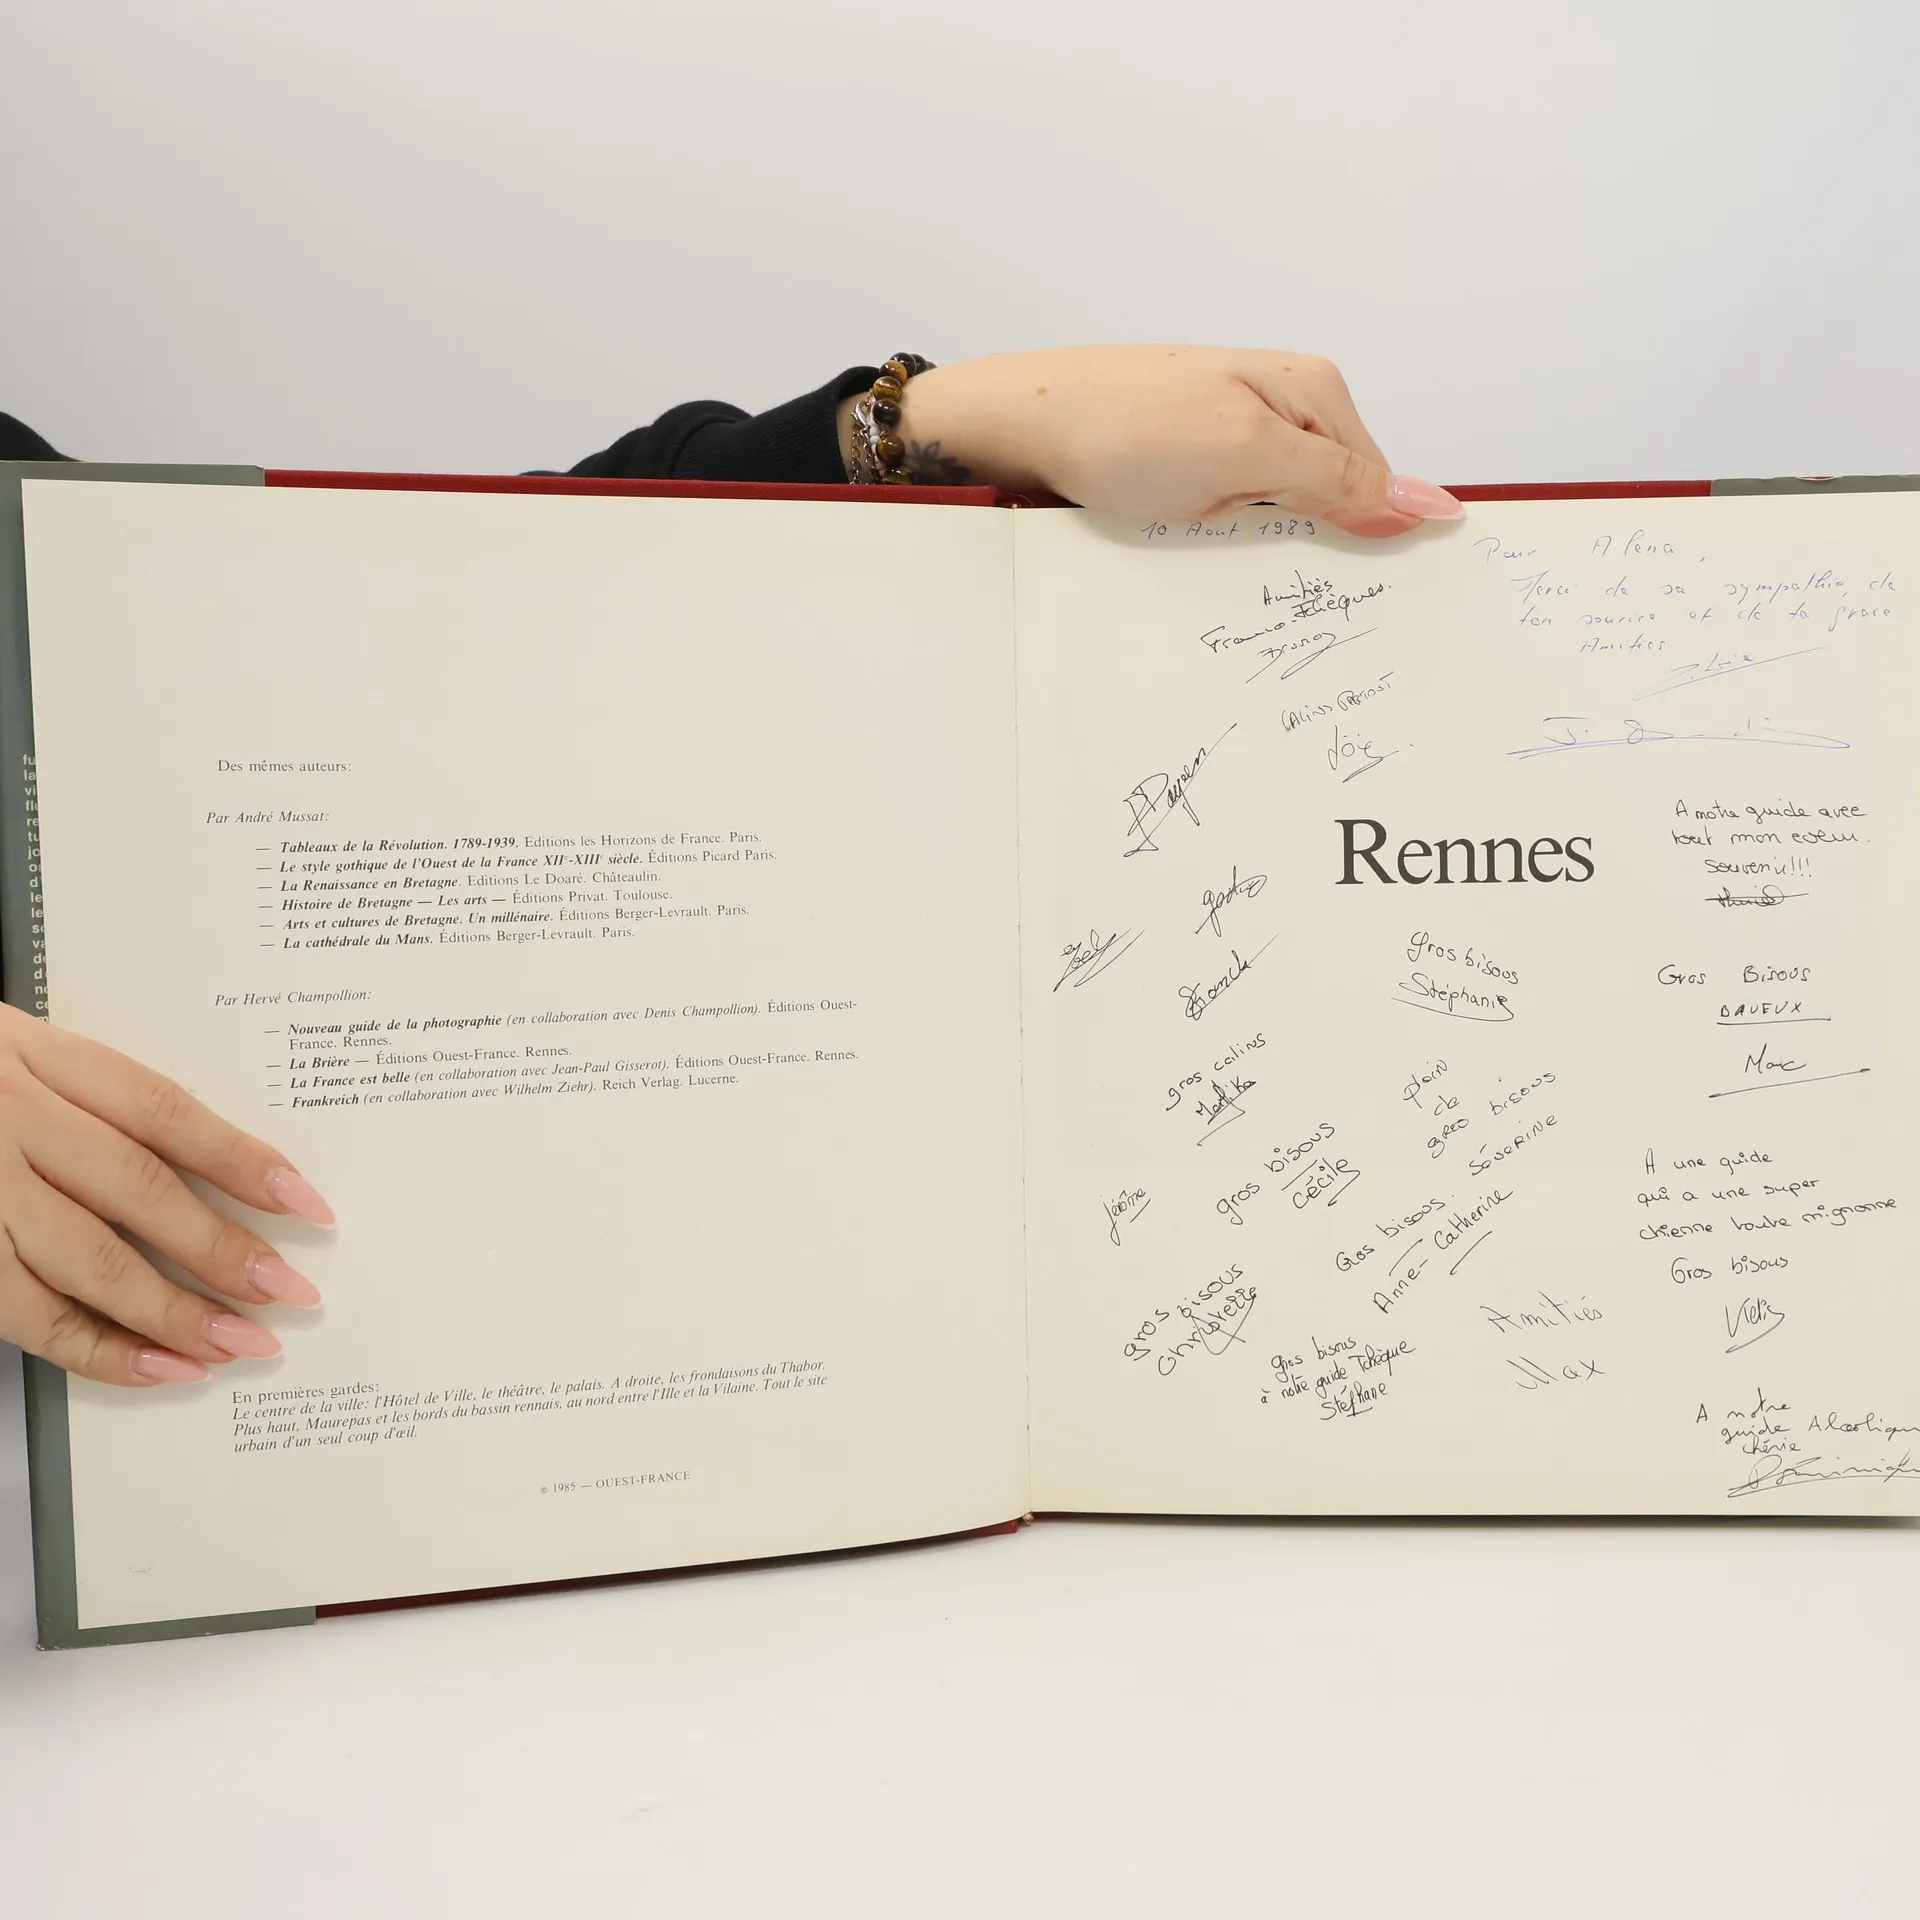 fu
la
vi
flu
re
tu
jo
d'
le
le
so
va
de
d
no
ce
Des mêmes auteurs:
Par André Mussat:
— Tableaux de la Révolution. 1789-1939. Editions les Horizons de France. Paris.
— Le style gothique de l'Ouest de la France XIIᵉ-XIIIᵉ siècle. Éditions Picard Paris.
— La Renaissance en Bretagne. Editions Le Doaré. Châteaulin.
— Histoire de Bretagne — Les arts — Éditions Privat. Toulouse.
— Arts et cultures de Bretagne. Un millénaire. Éditions Berger-Levrault. Paris.
— La cathédrale du Mans. Éditions Berger-Levrault. Paris.
Par Hervé Champollion:
— Nouveau guide de la photographie (en collaboration avec Denis Champollion). Éditions Ouest-
France. Rennes.
— La Brière — Éditions Ouest-France. Rennes.
— La France est belle (en collaboration avec Jean-Paul Gisserot). Éditions Ouest-France. Rennes.
— Frankreich (en collaboration avec Wilhelm Ziehr). Reich Verlag. Lucerne.
En premières gardes:
Le centre de la ville: l'Hôtel de Ville, le théâtre, le palais. A droite, les frondaisons du Thabor.
Plus haut, Maurepas et les bords du bassin rennais, au nord entre l'Ille et la Vilaine. Tout le site
urbain d'un seul coup d'œil.
© 1985 — OUEST-FRANCE
10 Aout 1989
Amitiés
Franco-Tchèques.
Pour Alena,
Merci de sa sympathie, de
ton sourire et de ta grace.
Amitiés
CALINS PARTOUT
Loïc
Payen
Rennes
A notre guide avec
tout mon coeur.
souvenir!!!
Joel
Franck
Gros bisous
Stéphanie
Gros Bisous
DAVEUX
Marc
gros calins
plein
de
gros bisous
Séverine
gros bisous
Cécile
Jérôme
Gros bisous.
Anne-Catherine
A une guide
qui a une super
chienne toute mignonne
Gros bisous
gros bisous
Christelle
gros bisous
à notre guide Tchèque
Stéphane
Amitiés
Max
A notre
guide Alcoolique
chérie
Dominique